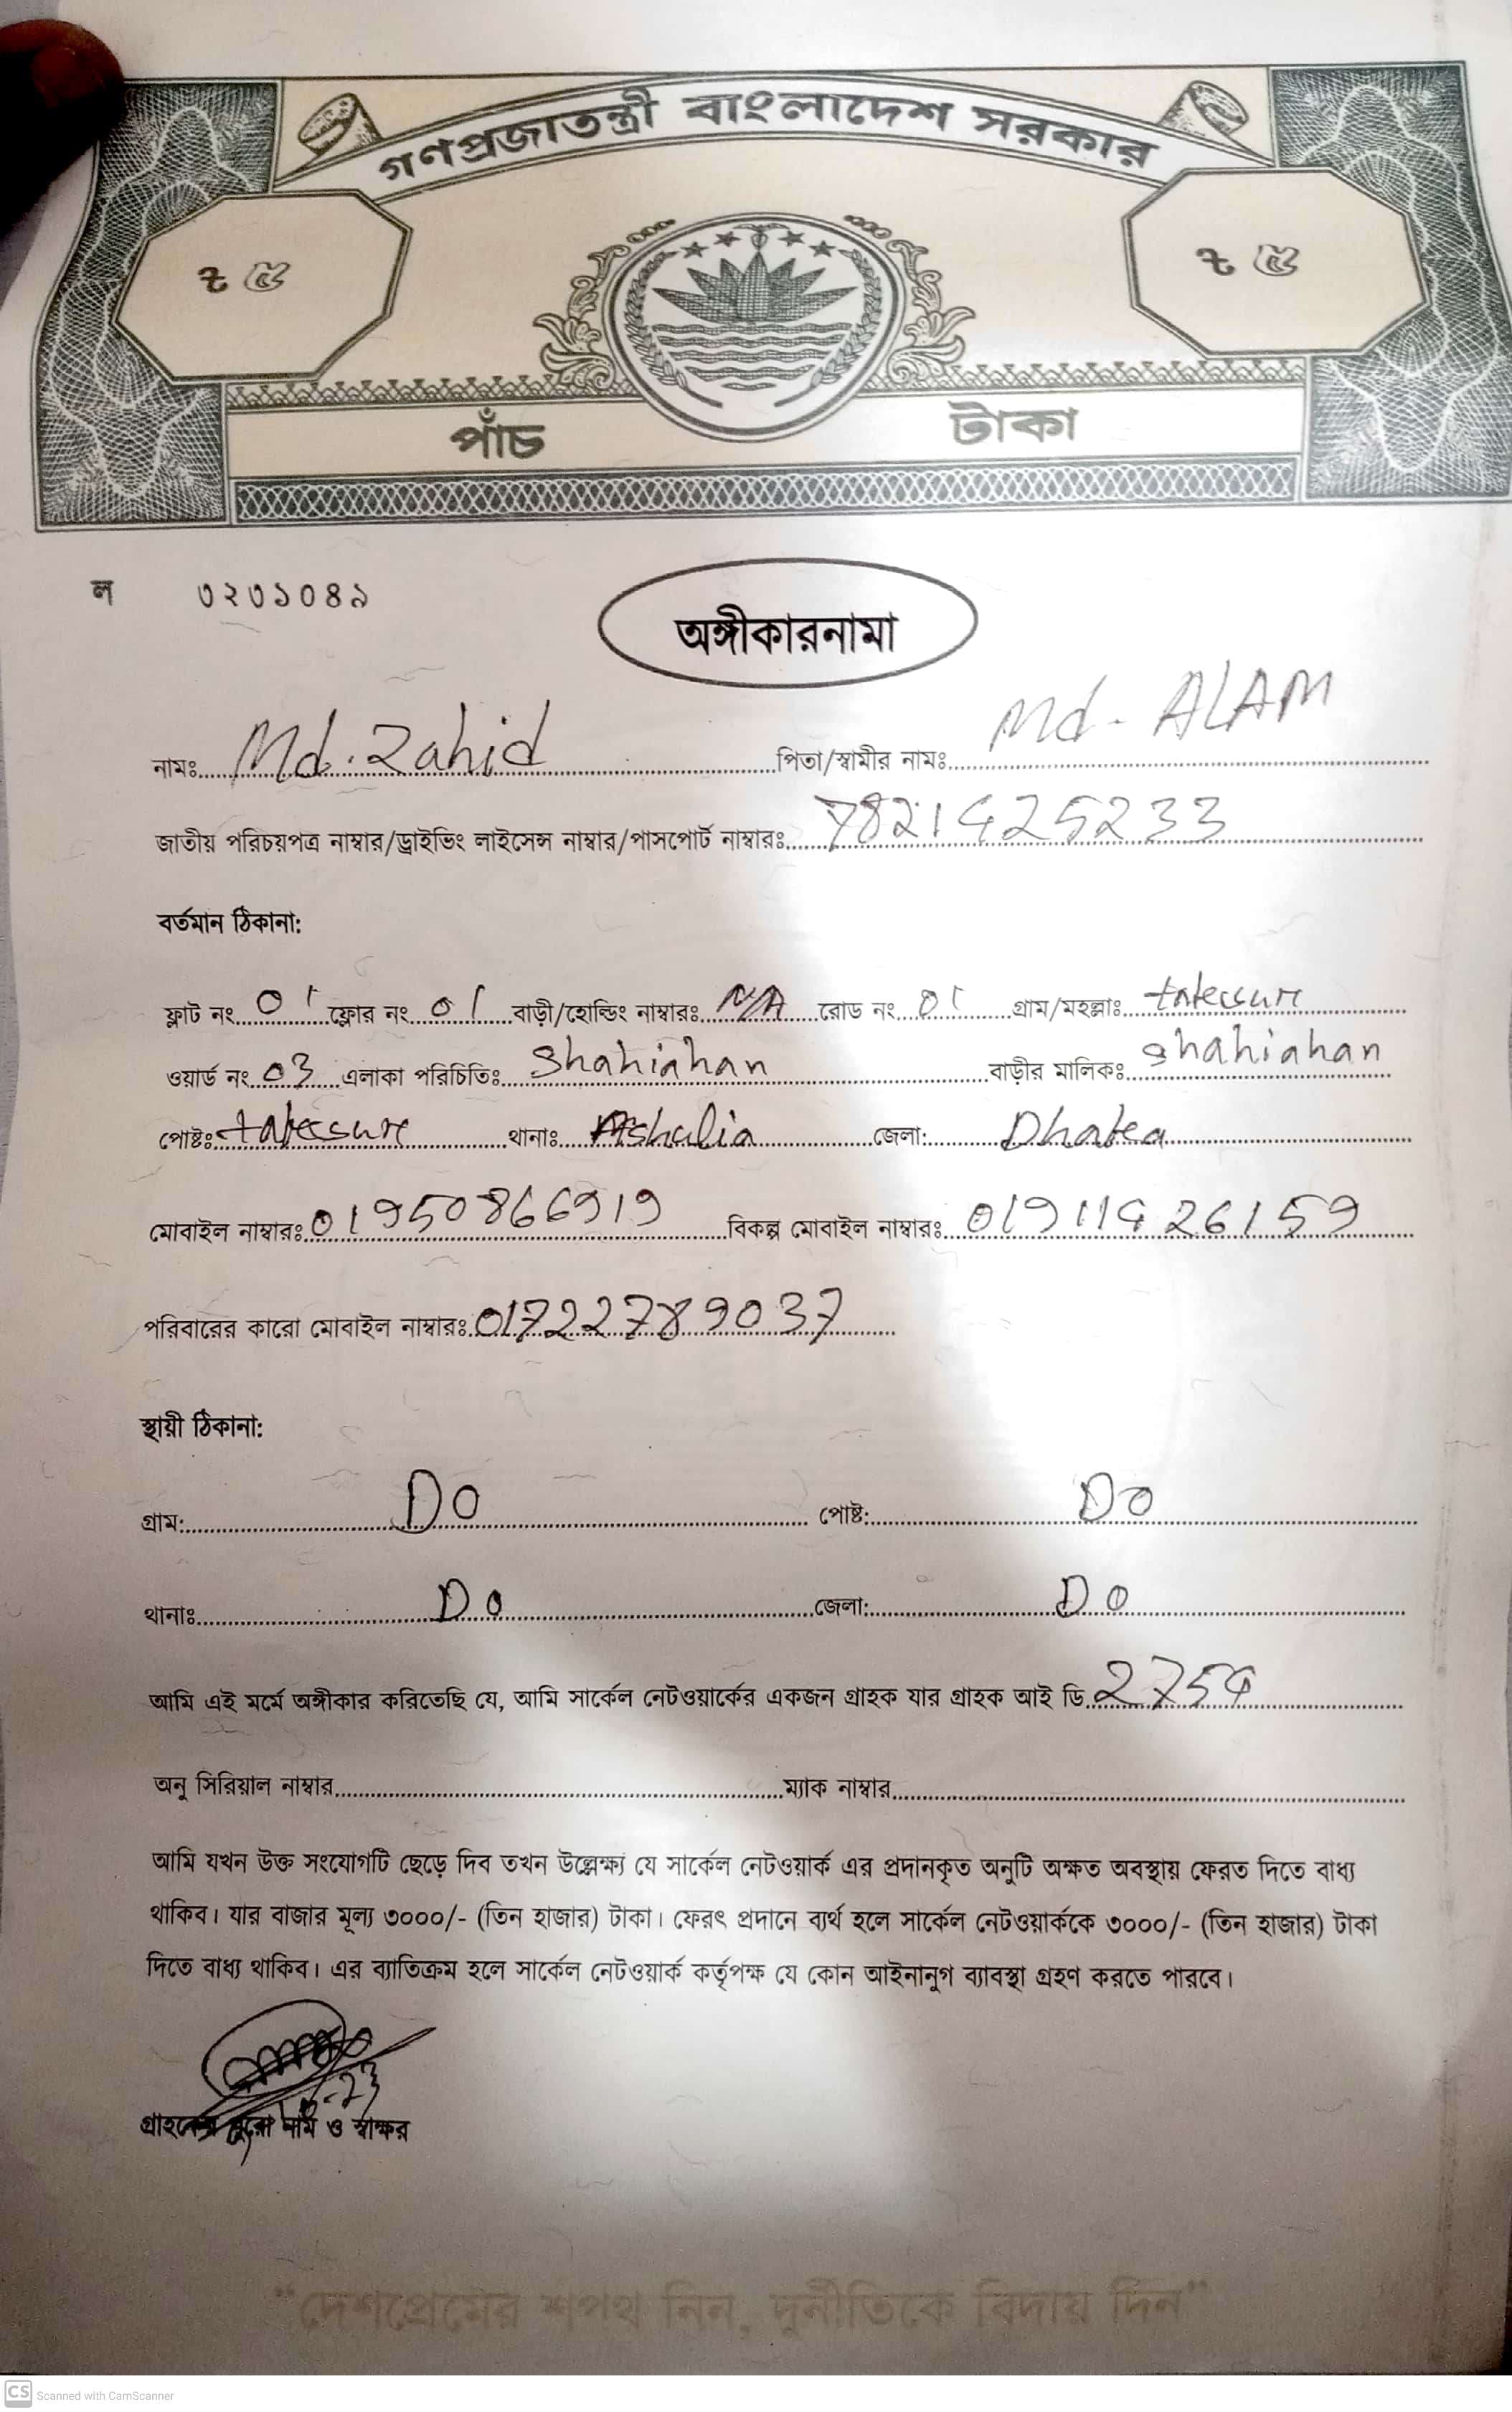 গণপ্রজাতন্ত্রী বাংলাদেশ সরকার
৳ ৫ ৳ ৫
পাঁচ টাকা
ল ৩২৩১০৪৯
অঙ্গীকারনামা
নামঃ Md. Zahid পিতা/স্বামীর নামঃ Md- ALAM
জাতীয় পরিচয়পত্র নাম্বার/ড্রাইভিং লাইসেন্স নাম্বার/পাসপোর্ট নাম্বারঃ 7821425233
বর্তমান ঠিকানা:
ফ্লাট নং 01 ফ্লোর নং 01 বাড়ী/হোল্ডিং নাম্বারঃ N/A রোড নং 01 গ্রাম/মহল্লাঃ
ওয়ার্ড নং 03 এলাকা পরিচিতিঃ Shahiahan বাড়ীর মালিকঃ Shahiahan
পোষ্টঃ থানাঃ Ashulia জেলা: Dhaka
মোবাইল নাম্বারঃ 01950866919 বিকল্প মোবাইল নাম্বারঃ 01911426159
পরিবারের কারো মোবাইল নাম্বারঃ 01722789037
স্থায়ী ঠিকানা:
গ্রাম: DO পোষ্ট: DO
থানাঃ DO জেলা: DO
আমি এই মর্মে অঙ্গীকার করিতেছি যে, আমি সার্কেল নেটওয়ার্কের একজন গ্রাহক যার গ্রাহক আই ডি 2754
অনু সিরিয়াল নাম্বার ম্যাক নাম্বার
আমি যখন উক্ত সংযোগটি ছেড়ে দিব তখন উল্লেক্ষ্য যে সার্কেল নেটওয়ার্ক এর প্রদানকৃত অনুটি অক্ষত অবস্থায় ফেরত দিতে বাধ্য
থাকিব। যার বাজার মূল্য ৩০০০/- (তিন হাজার) টাকা। ফেরৎ প্রদানে ব্যর্থ হলে সার্কেল নেটওয়ার্ককে ৩০০০/- (তিন হাজার) টাকা
দিতে বাধ্য থাকিব। এর ব্যাতিক্রম হলে সার্কেল নেটওয়ার্ক কর্তৃপক্ষ যে কোন আইনানুগ ব্যাবস্থা গ্রহণ করতে পারবে।
গ্রাহকের পুরো নাম ও স্বাক্ষর
"দেশপ্রেমের শপথ নিন, দুর্নীতিকে বিদায় দিন"
CS Scanned with CamScanner